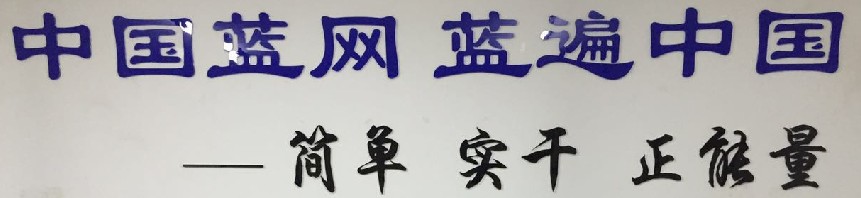 中国蓝网 蓝遍中国
——简单 实干 正能量